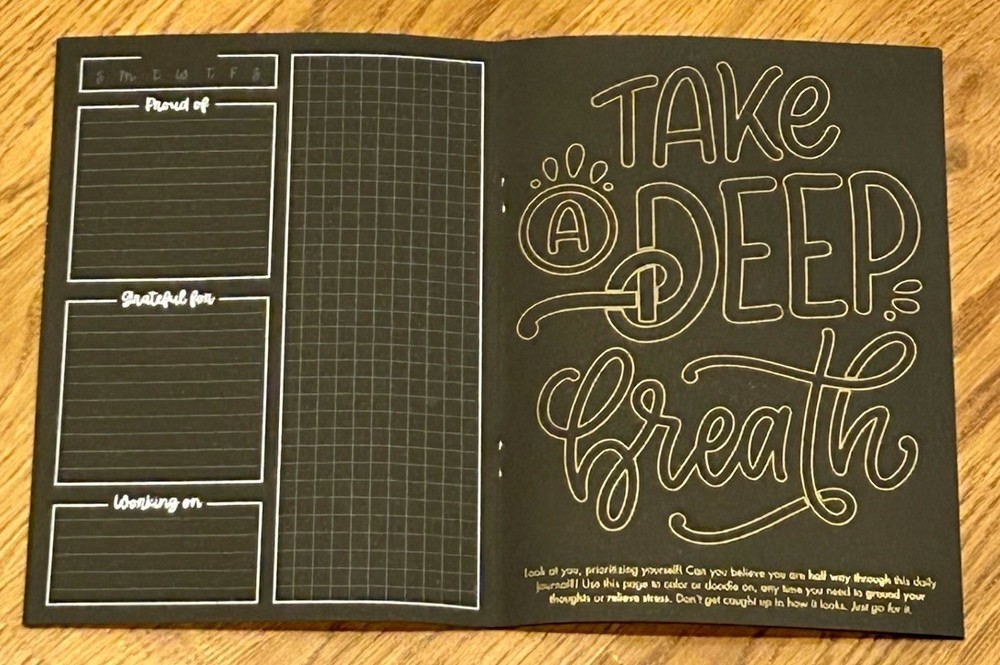 S M T W T F S
Proud of
Grateful for
Working on
TAKe
A DEEP
breath
Look at you, prioritizing yourself! Can you believe you are half way through this daily
journal!! Use this page to color or doodle on, any time you need to ground your
thoughts or relieve stress. Don't get caught up in how it looks. Just go for it.